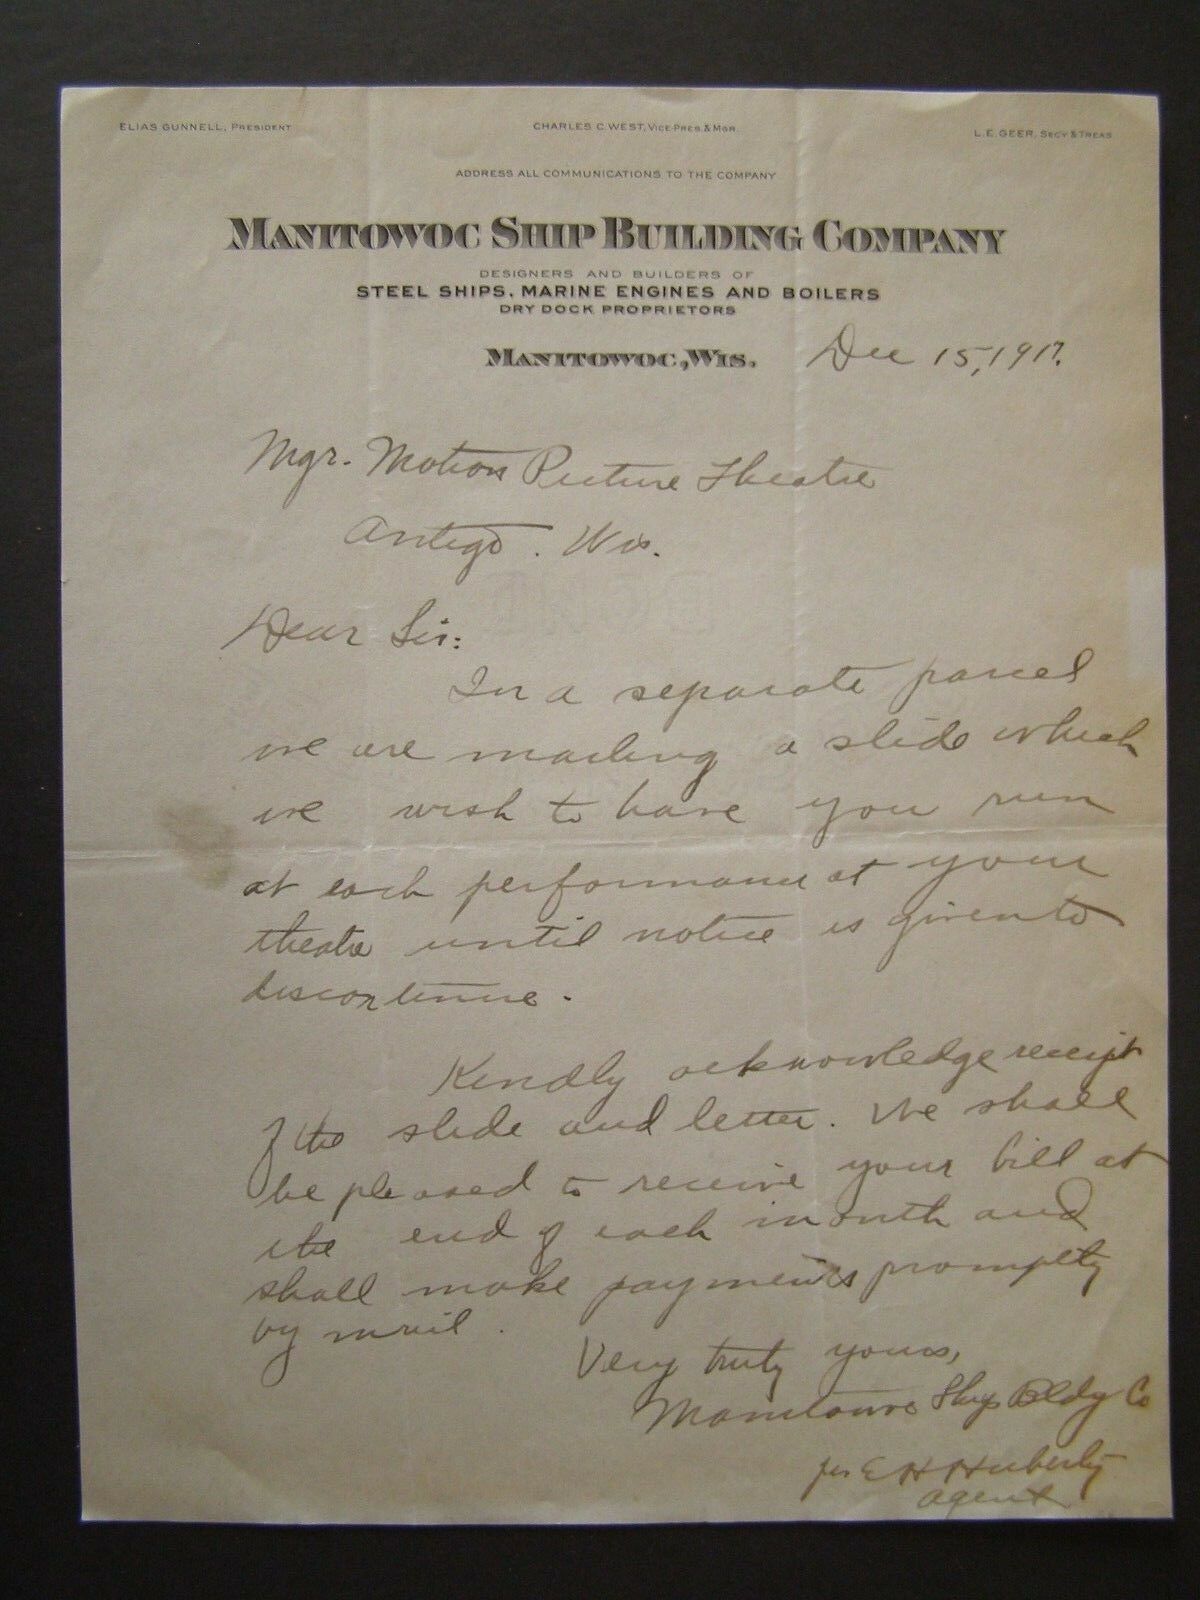 ELIAS GUNNELL, PRESIDENT
CHARLES C. WEST, VICE-PRES. & MGR.
L.E. GEER, SECY & TREAS
ADDRESS ALL COMMUNICATIONS TO THE COMPANY
MANITOWOC SHIP BUILDING COMPANY
DESIGNERS AND BUILDERS OF
STEEL SHIPS, MARINE ENGINES AND BOILERS
DRY DOCK PROPRIETORS
MANITOWOC, WIS. Dec 15, 1917.
Mgr. Motion Picture Theatre
Antigo. Wis.
Dear Sir:
In a separate parcel
we are mailing a slide which
we wish to have you run
at each performance at your
theatre until notice is given to
discontinue.
Kindly acknowledge receipt
of the slide and letter. We shall
be pleased to receive your bill at
the end of each month and
shall make payments promptly
by mail.
Very truly yours,
Manitowoc Ship Bldg Co
per E H Huberty
agent